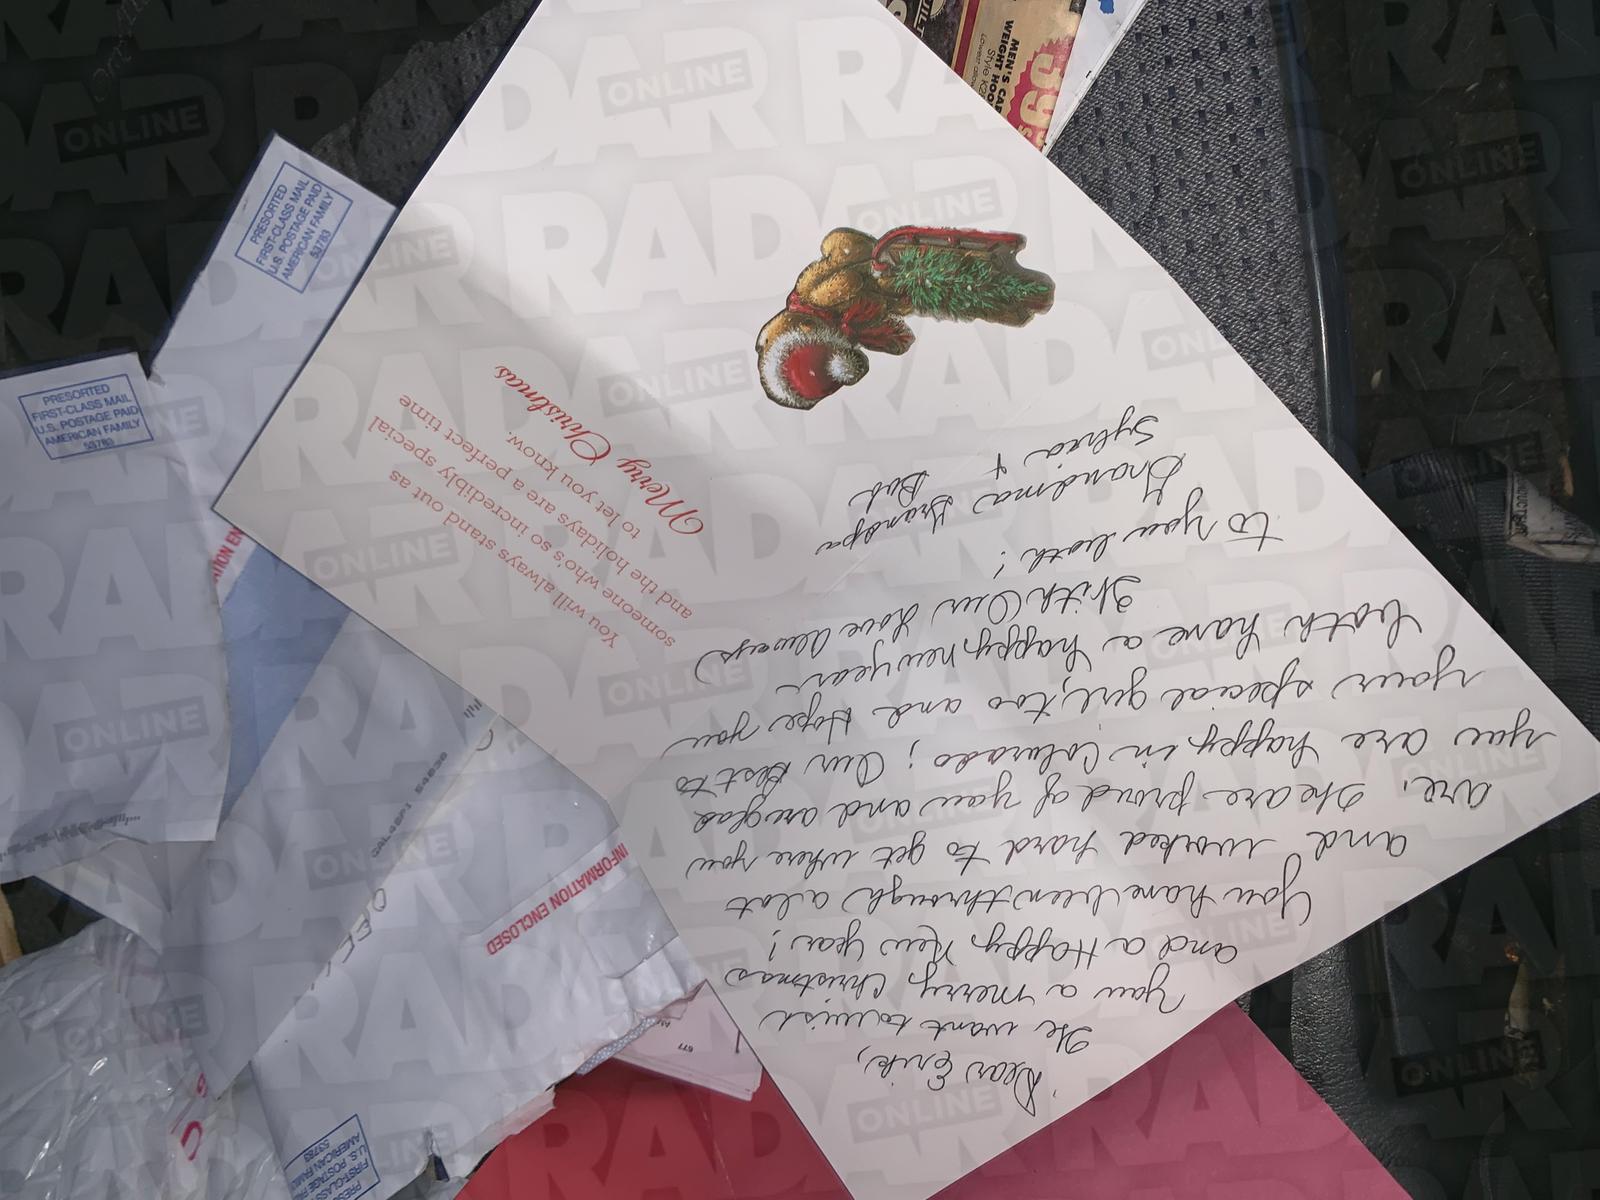 Dear Erik,
We want to wish
you a merry Christmas
and a Happy New Year!
You have been through a lot
and worked hard to get where you
are. We are proud of you and are glad
you are happy in Colorado; Our Best to
your special girl, too and Hope you
both have a happy new year
With Our Love Always
to you both!
Grandma Grandpa
Sylvea + Bob
You will always stand out as
someone who's so incredibly special
and the holidays are a perfect time
to let you know.
Merry Christmas
PRESORTED
FIRST-CLASS MAIL
U.S. POSTAGE PAID
AMERICAN FAMILY
53783
PRESORTED
FIRST-CLASS MAIL
U.S. POSTAGE PAID
AMERICAN FAMILY
53783
INFORMATION ENCLOSED
FIRST-CLASS
U.S. POSTAGE
AMERICAN FAMI
53783
MEN'S
WEIGHT
Style
RADAR
ONLINE